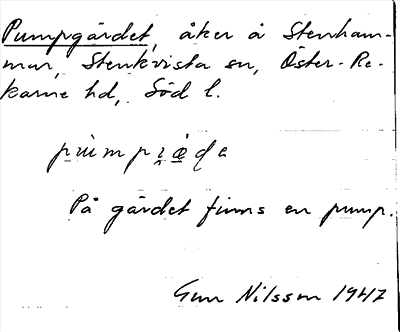 Pumpgärdet, åker å Stenham-
mar, Stenkvista sn, Öster-Re-
karne hd, Söd l.
På gärdet finns en pump.
Gun Nilsson 1947